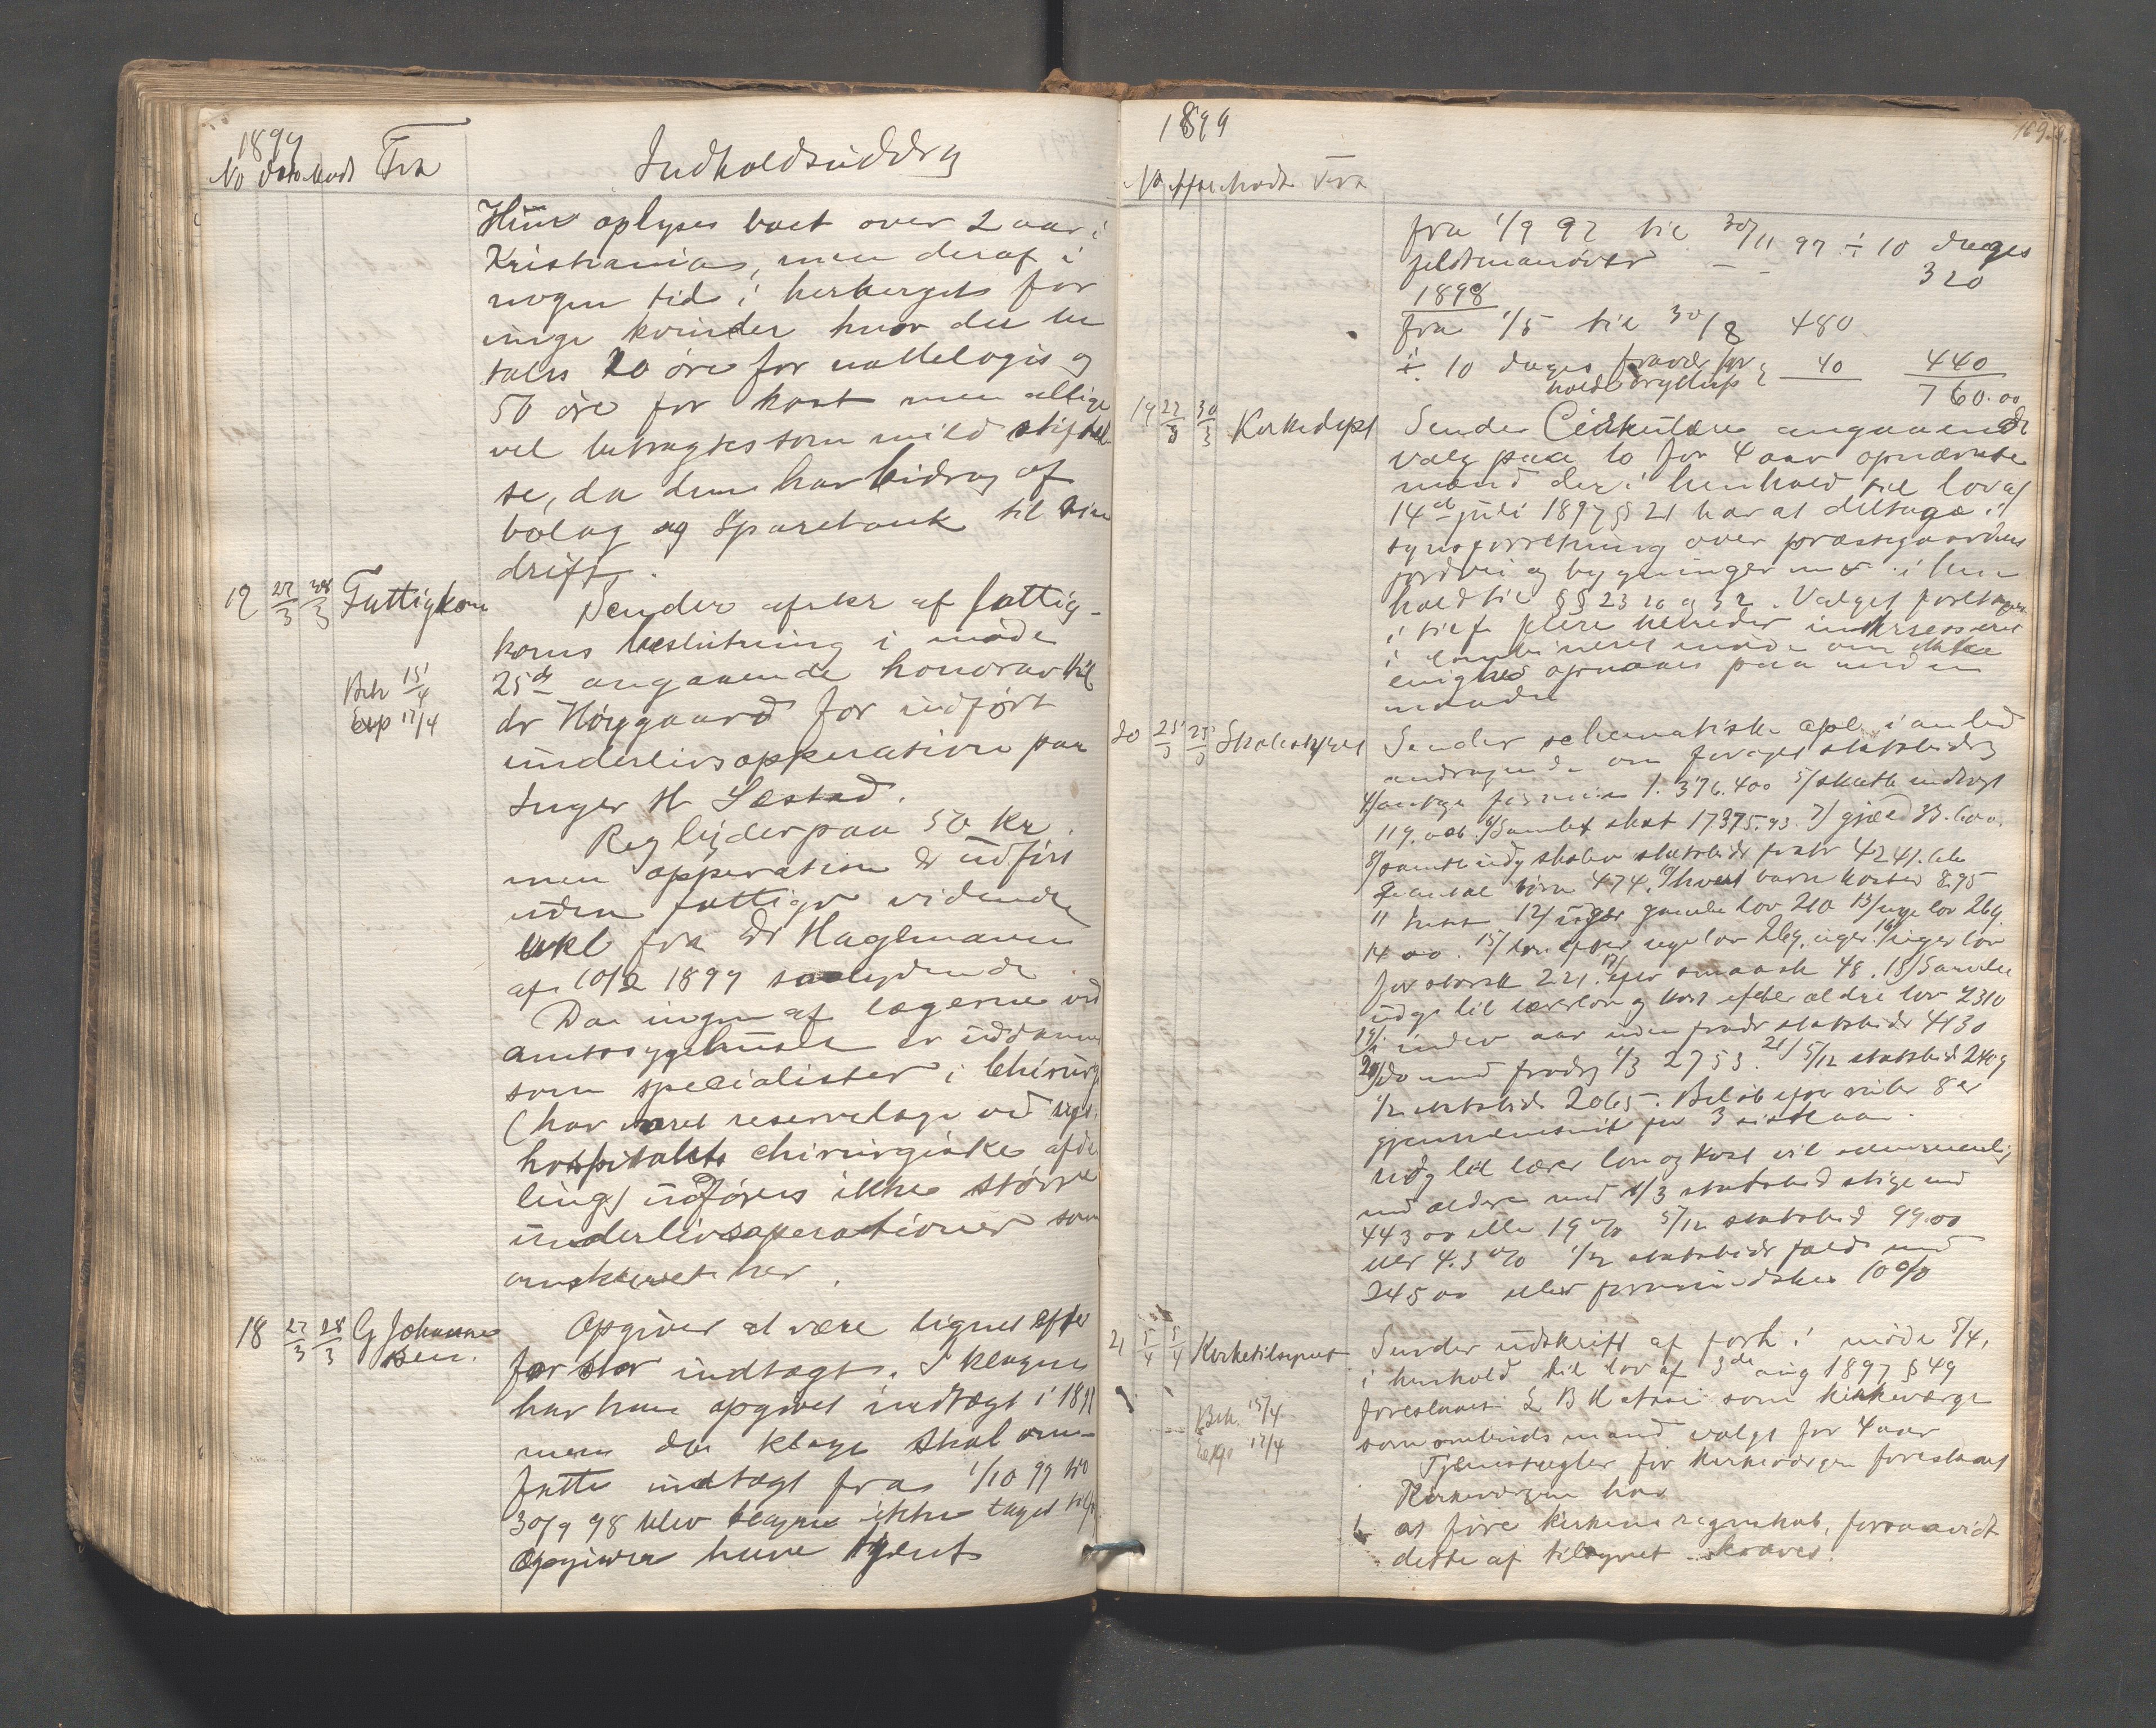 1899
No Dato Modt Fra Indholdsuddrag
Hun oplyses boet over 2 aar i
Kristiania, men deraf i
nogen tid i herberget for
unge kvinder hvor der be
tales 20 øre for nattelogis og
50 øre for kost men allige
vel betragtes som mild stiftel
se, da den har bidrag af
bolag og Sparebank til sin
drift.
19 27/3 28/3 Fattigkom Sender afskr af fattig-
koms beslutning i møde
25de angaaende honorar til
Beh 15/4
Exp 17/4
dr Høygaard for udført
underlivsopperation paa
Inger H Sæstad.
Reg lyder paa 50 kr.
men opperation er udført
uden fattigv vidende
erkl fra dr Haglmann
af 10/2 1899 saalydende
Da ingen af lægerne ved
amtssygehuset er uddannet
som specialister i chirurgi
(har været reservelæge ved rigs
hospitalets chirurgiske afde
ling) udføres ikke større
underlivsoperationer som
omskrevet her.
18 27/3 28/3 G Johanne
sen.
Opgiver at være lignet efter
for stor indtægt. I klagen
har han opgivet indtægt i 1898
men da klage skal om-
fatte indtægt fra 1/10 97 til
30/9 98 blev klagen ikke taget tilf
Opgiver have tjent
1899
No Modt Fra
169.
fra 1/9 97 til 30/11 97 ÷ 10 dages
feldtmanøver 320
1898
fra 1/5 til 30/8 480
÷ 10 dages fravær for 40 440
760.00
19 27/3 30/3 Kirkedept Sender Cirkulære angaaende
valg paa to for 4 aar opnævnte
mænd der i henhold til lov af
14de juli 1897 § 21 har at deltage i
synsforretning over præstegaardens
jordvei og bygninger m.v. i hen
hold til §§ 23 og 32. Valget foretages
i tilf flere herreder interesseret
i kombineret møde om ikke
enighed opnaaes paa anden
maade
20 25/3 25/3 Sender schematisk opl. i anled
andragende om forøget statsbidrag
4/ formue 1.376.400 5/ skatb indtægt
6/ Samlet skat 17375.93 7/ gjæld
8/ statsbidr 4241.
9 antal børn 474. hvert barn kosted 8.95
11 12/ uger gamle lov 210 13/ nye lov 269.
14 00. 15/ nye lov 269. uger. 16/ uger lov
for storsk 221. 17/ efter smaask 48. 18/ Samlede
udg til lærerløn og kost efter ældre lov 7310
19/ under aar uden fradr statsbidr 4130
20/ do med fradrg 1/3 2753. 21/ 5/12 statsbid 2409
1/2 statsbid 2065. Beløb
gjennemsnit for 3 sidste aar.
udg til lærer løn og kost vil
med ældre med 1/3 statsbid stige med
443 00 eller 19 % 5/12 statsbid 99.00
eller 4.3 % 1/2 statsbidr fald med
245 00 eller formindskes 10 %
21 5/4 5/4 Kirketilsynet Sender udskrift af forh. i møde 5/4.
i henhold til lov af 3de aug 1897 § 49
foreslaaes som kirkeværge
Beh. 15/4
Exp. 17/4
som ombudsmand valgt for 4 aar
Tjenestregler for Kirkeværgen foreslaaes
Kirkeværgen har
1 at føre kirkens regnskab, forsaavidt
dette af tilsynet kræves.